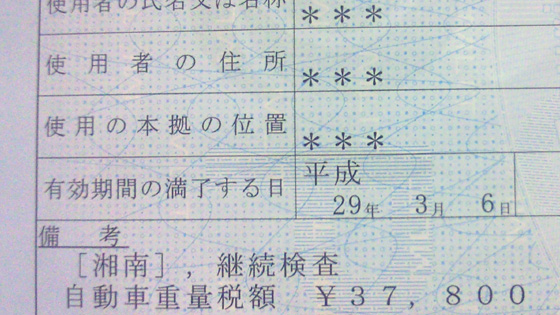 使用者の氏名又は名称 ***
使用者の住所 ***
使用の本拠の位置 ***
有効期間の満了する日 平成
29年 3月 6日
備考
[湘南], 継続検査
自動車重量税額 ¥37,800